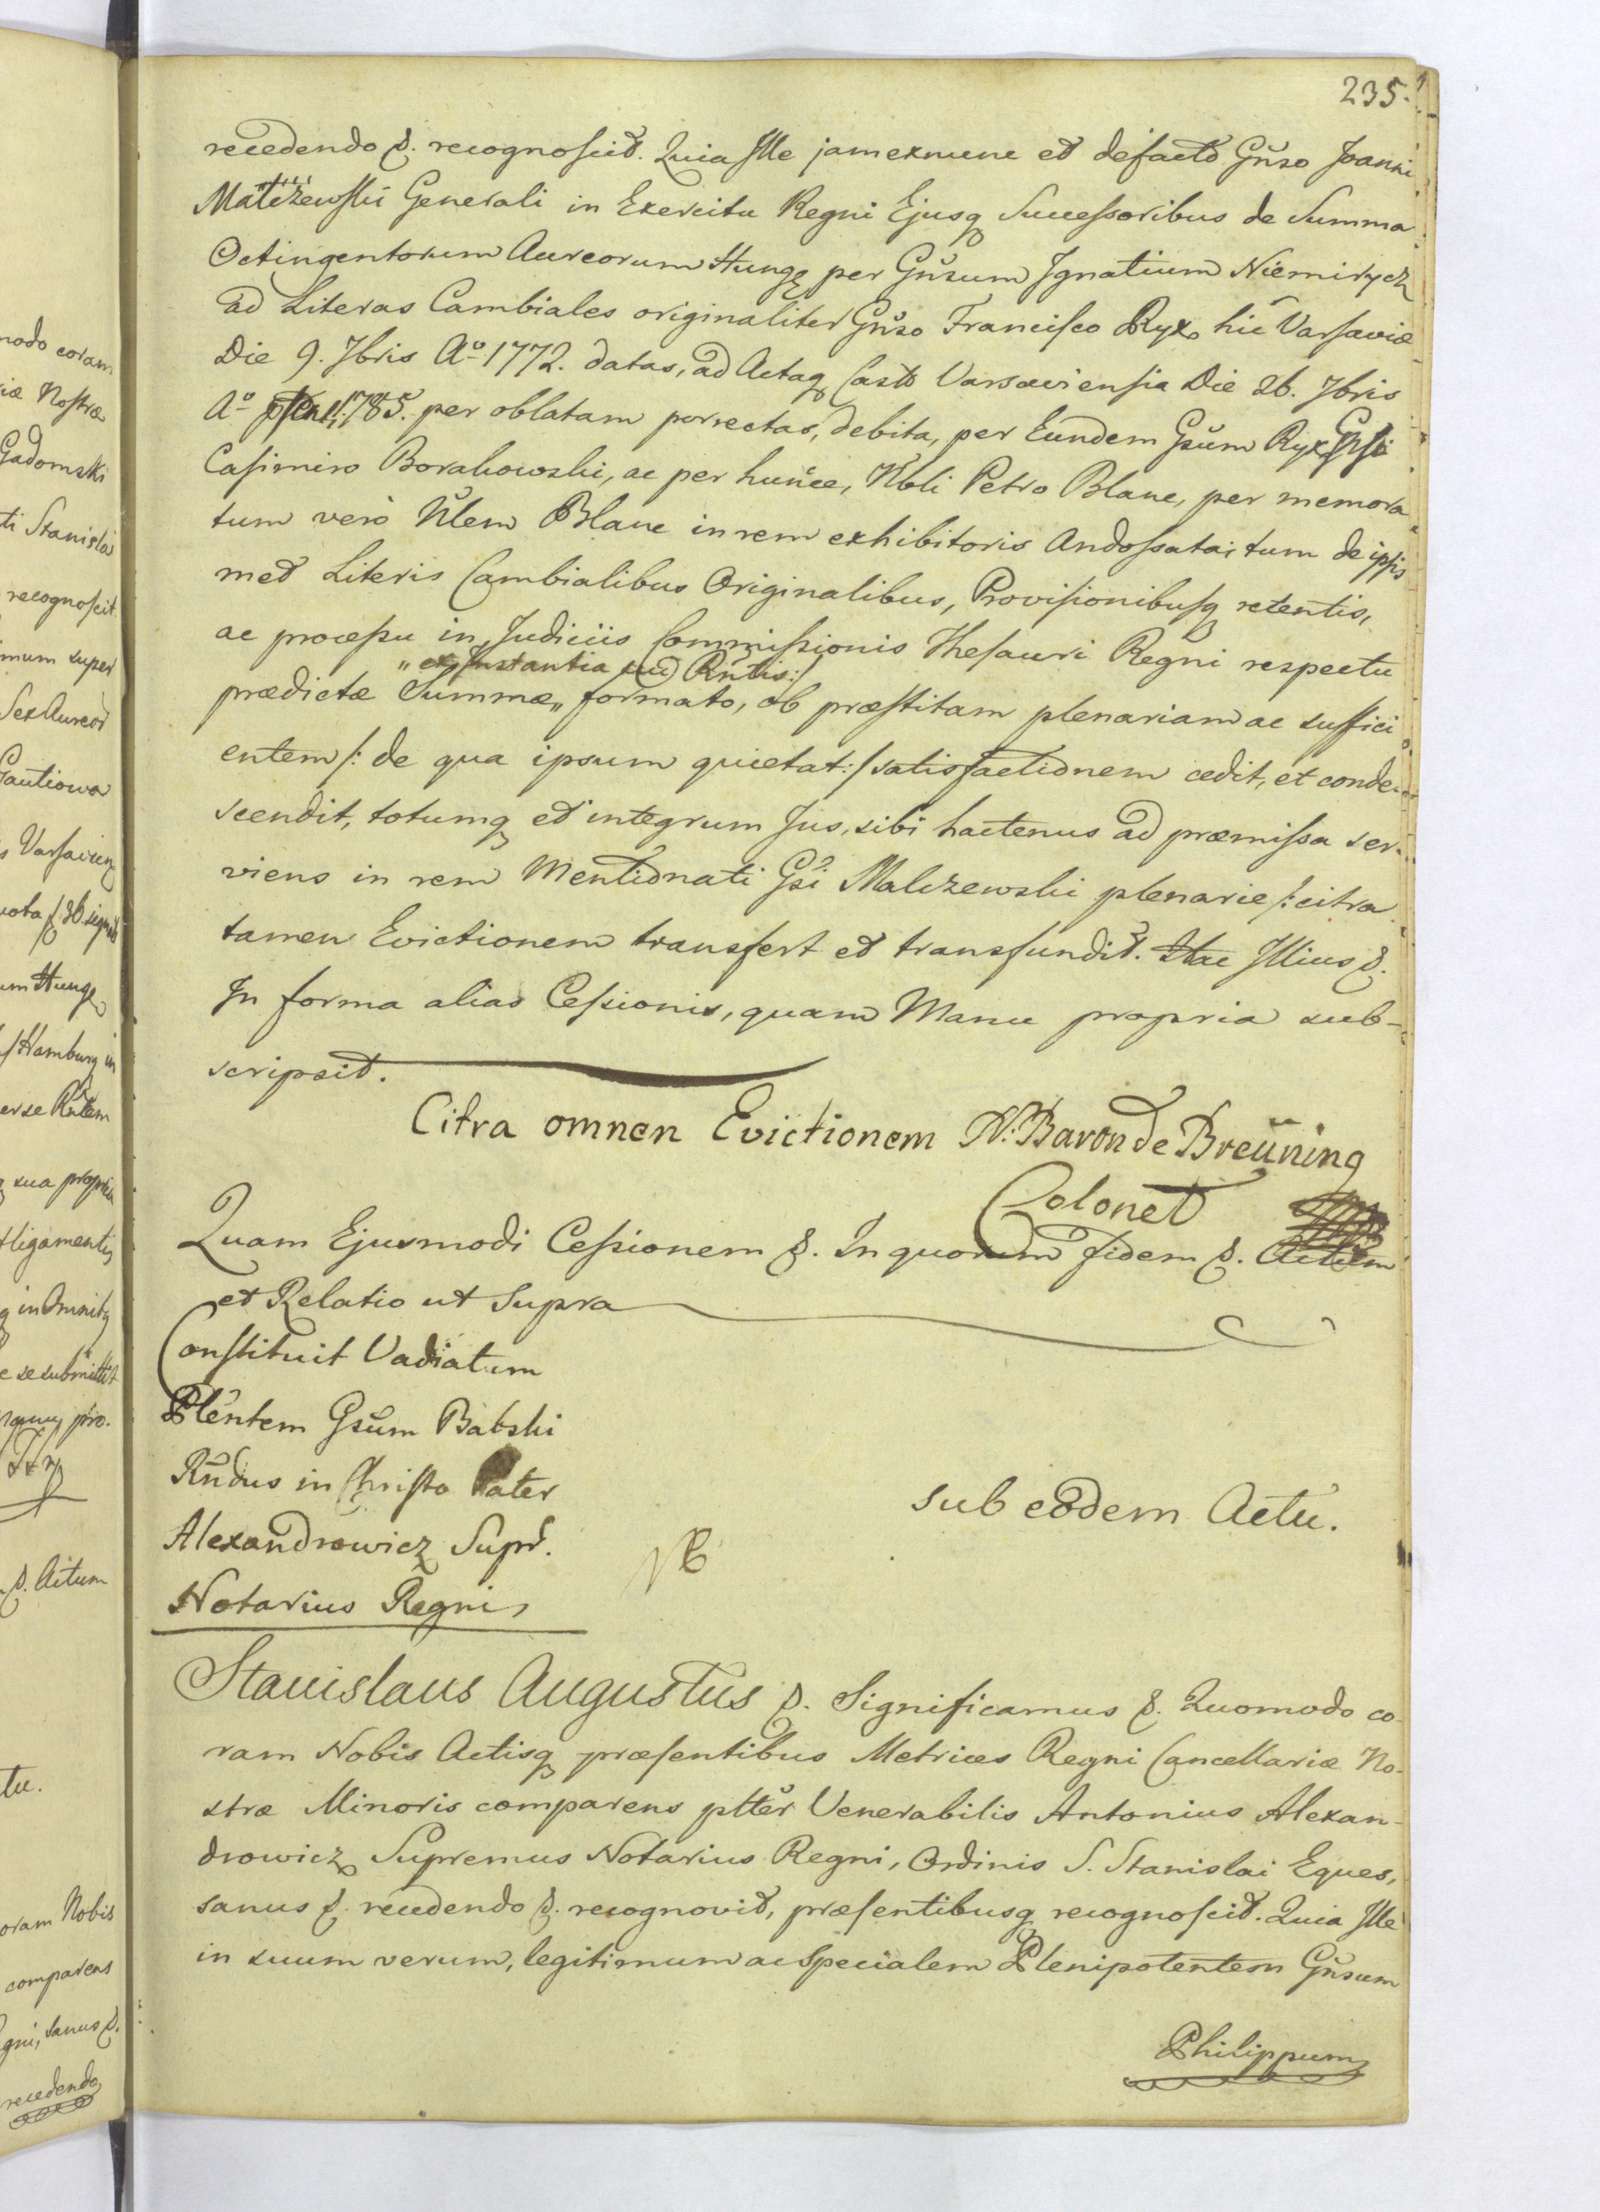 235.
recedendo &. recognoscit. Quia Ille jam exnunc et defacto Gnso Joanni
Malczewski Generali in Exercitu Regni Ejusq Successoribus de Summa
Octingentorum Aureorum Hung per Gnsum Ignatium Niemirycz
ad Literas Cambiales originaliter Gnso Francisco Ryx hic Varsaviæ
Die 9. 7bris Aº 1772. datas, ad Actaq Castr Varsaviensia Die 26. 7bris
Aº 1785. per oblatam porrectas, debita, per Eundem Gsum Ryx Gnsi
Casimiro Borakowski, ac per hunce, Nbli Petro Blanc, per memora
tum verò Nlem Blanc in rem exhibitoris Andossata; tum de ipsis
met Literis Cambialibus Originalibus, Provisionibusq retentis,
ac processu in Judiciis Commissionis Thesauri Regni respectu
„ ex Instantia Rntis:/
prædictæ Summæ „ formato, ob præstitam plenariam ac suffici
entem /: de qua ipsum quietat :/ satisfactionem cedit, et conde-
scendit, totumq et integrum Jus, sibi hactenus ad præmissa ser-
viens in rem Mentionati Gsi Malczewski plenarie /: citra
tamen Evictionem transfert et transfundit. Hac Illius &.
In forma alias Cessionis, quam Manu propria sub-
scripsit.
Citra omnen Evictionem N: Baron de Breüning
Colonel
Quam Ejusmodi Cessionem &. In quorum fidem &. Actum
et Relatio ut supra
Constituit Vadiatum
Plentem Gsum Babski
Rndus in Christo Pater
Alexandrowicz Supr.
Notarius Regni
sub eodem Actu.
Stanislaus Augustus &. Significamus &. Quomodo co-
ram Nobis Actisq præsentibus Metrices Regni Cancellariæ No-
stræ Minoris comparens pltter Venerabilis Antonius Alexan-
drowicz Supremus Notarius Regni, Ordinis S. Stanislai Eques,
sanus &. recedendo &. recognovit, præsentibusq recognoscit. Quia Ille
in suum verum, legitimum ac specialem Plenipotentem Gnsum
Philippum